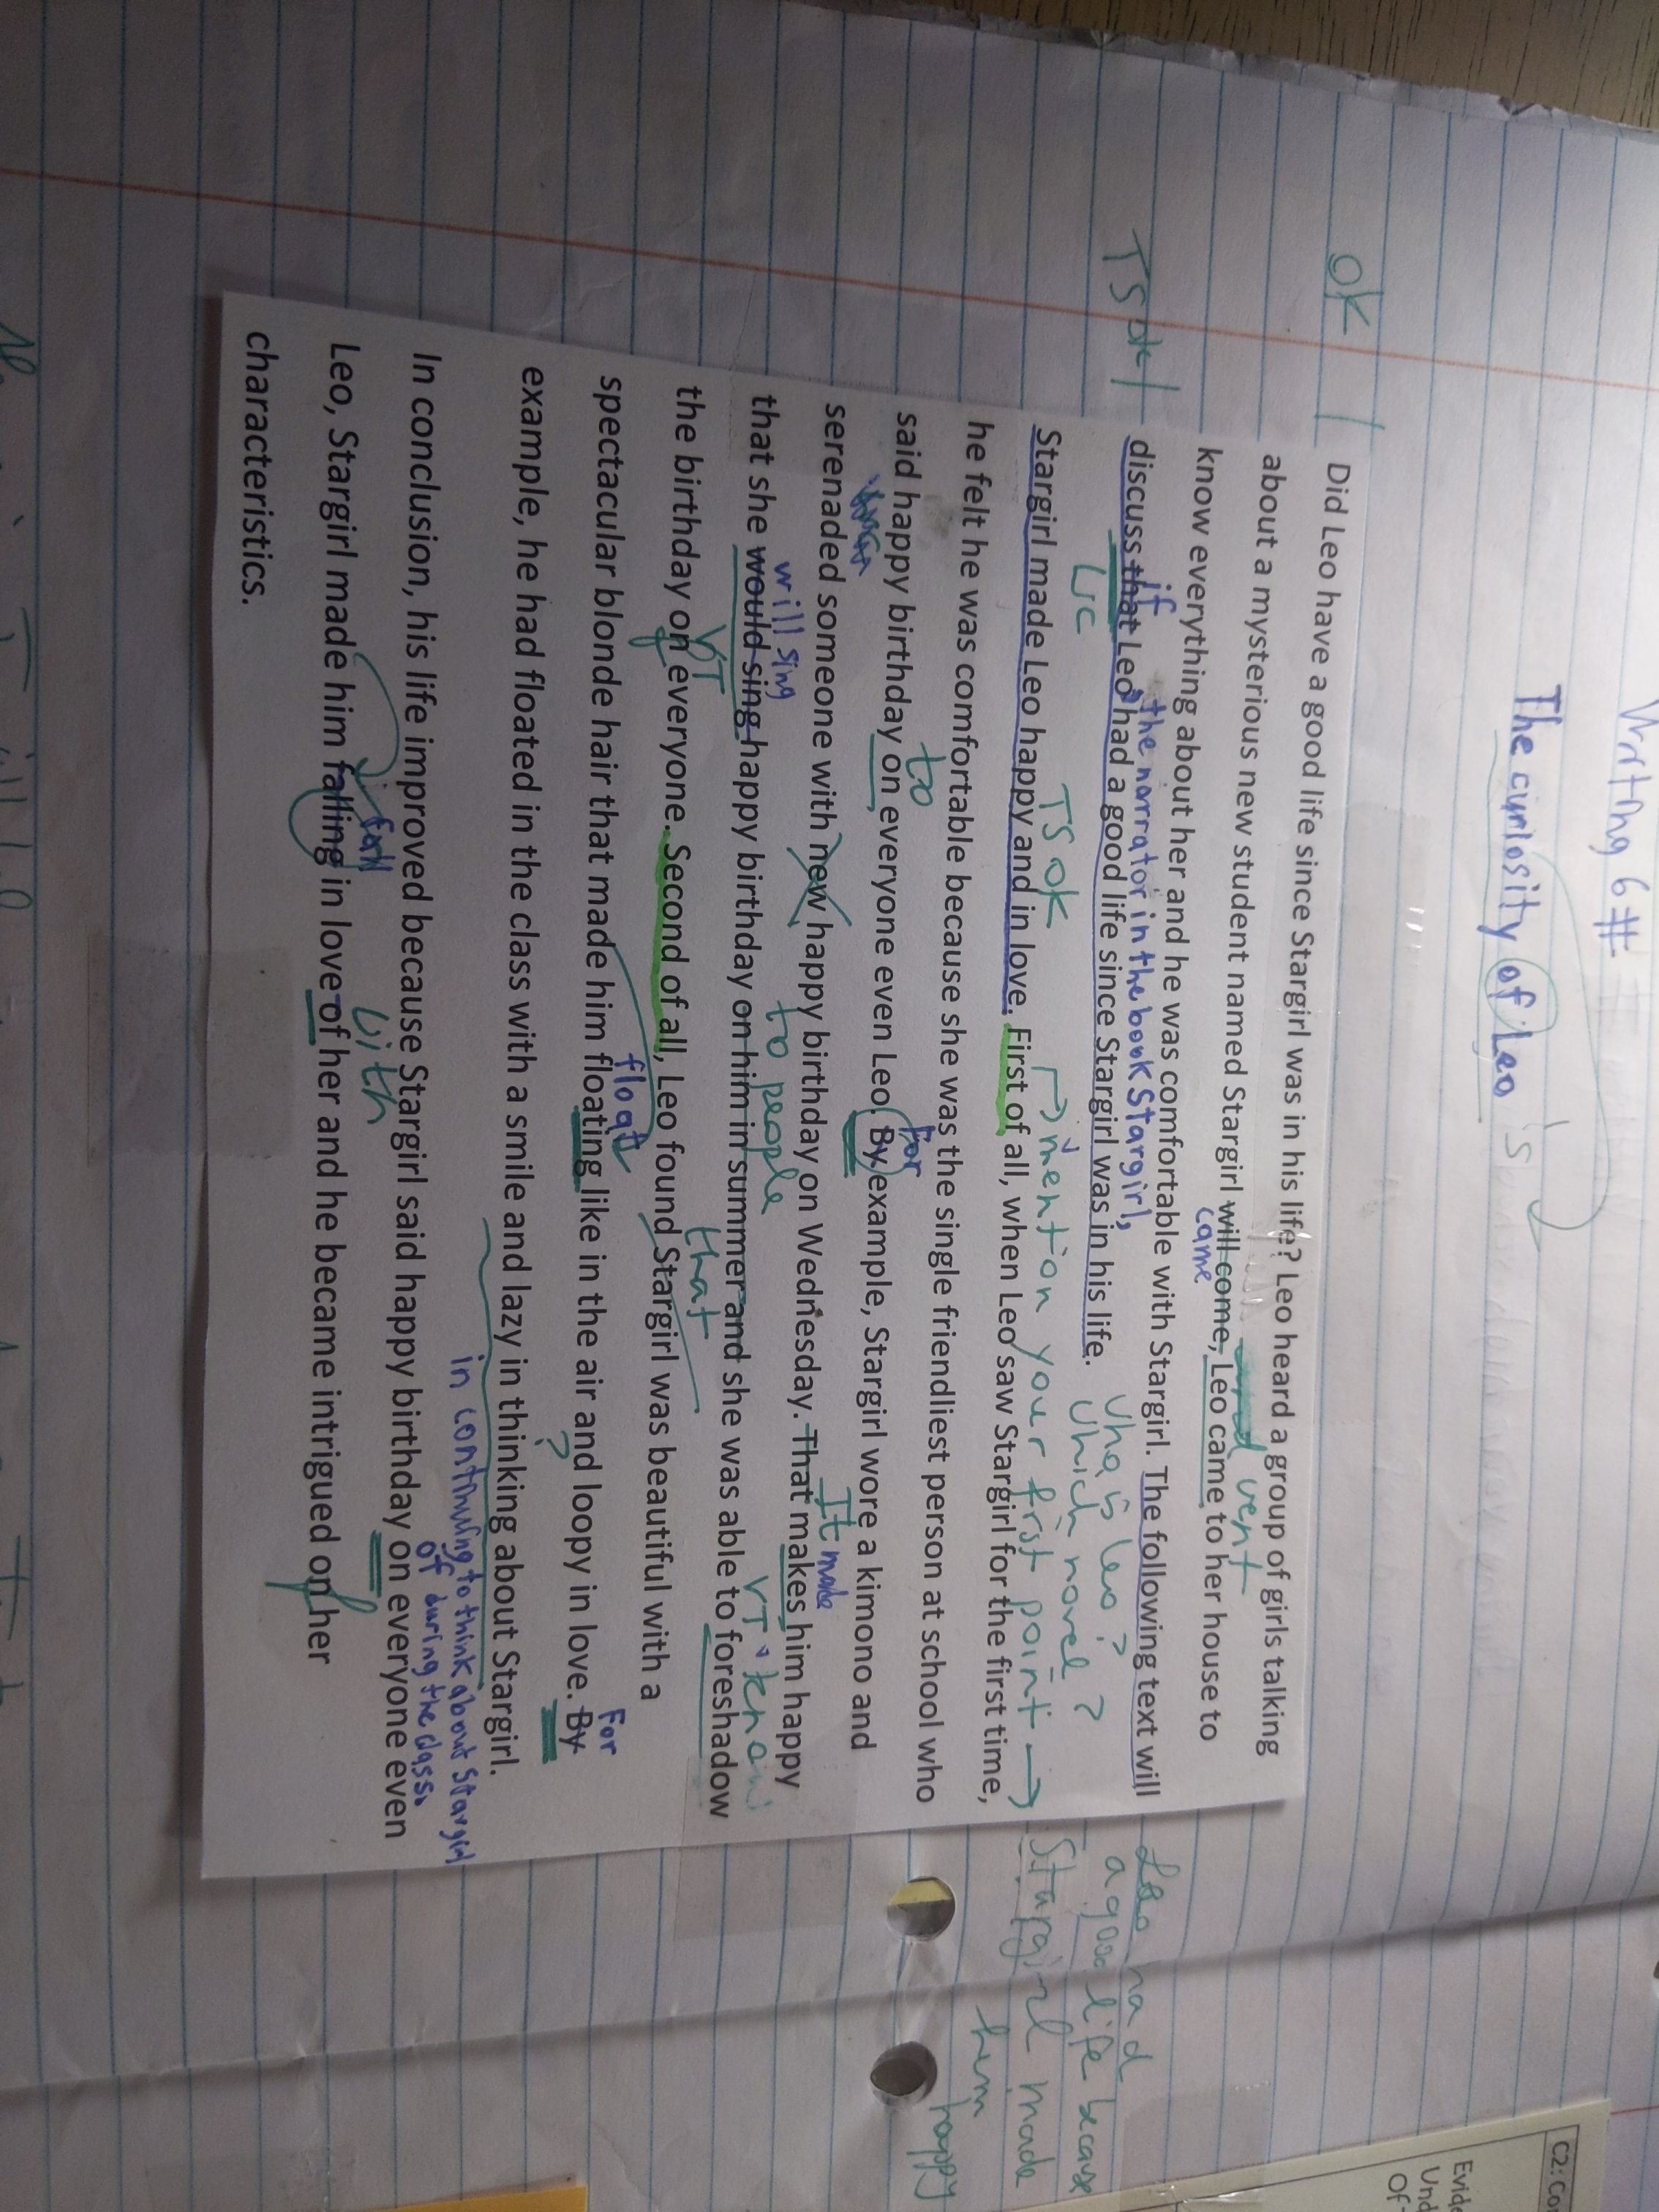 Writing 6#
The curiosity of Leo 's
OK
Did Leo have a good life since Stargirl was in his life? Leo heard a group of girls talking
and went
about a mysterious new student named Stargirl will come, Leo came to her house to
came
know everything about her and he was comfortable with Stargirl. The following text will
if , the narrator in the book Stargirl,
Who is Leo?
Leo had
TS ok
discuss that Leo had a good life since Stargirl was in his life.
Which novel?
a good life because
WC
TS ok
mention your first point
Stargirl made
Stargirl made Leo happy and in love. First of all, when Leo saw Stargirl for the first time,
him happy
he felt he was comfortable because she was the single friendliest person at school who
to
For
said happy birthday on everyone even Leo. By example, Stargirl wore a kimono and
serenaded someone with new happy birthday on Wednesday. That makes him happy
It made
will sing
to people
VT
know
that she would sing happy birthday on him in summer and she was able to foreshadow
VT
that
the birthday on everyone. Second of all, Leo found Stargirl was beautiful with a
float
For
spectacular blonde hair that made him floating like in the air and loopy in love. By
?
example, he had floated in the class with a smile and lazy in thinking about Stargirl.
in continuing to think about Stargirl
of during the class.
In conclusion, his life improved because Stargirl said happy birthday on everyone even
fall
with
Leo, Stargirl made him falling in love of her and he became intrigued on her
characteristics.
C2: Co
Evide
Und
Of